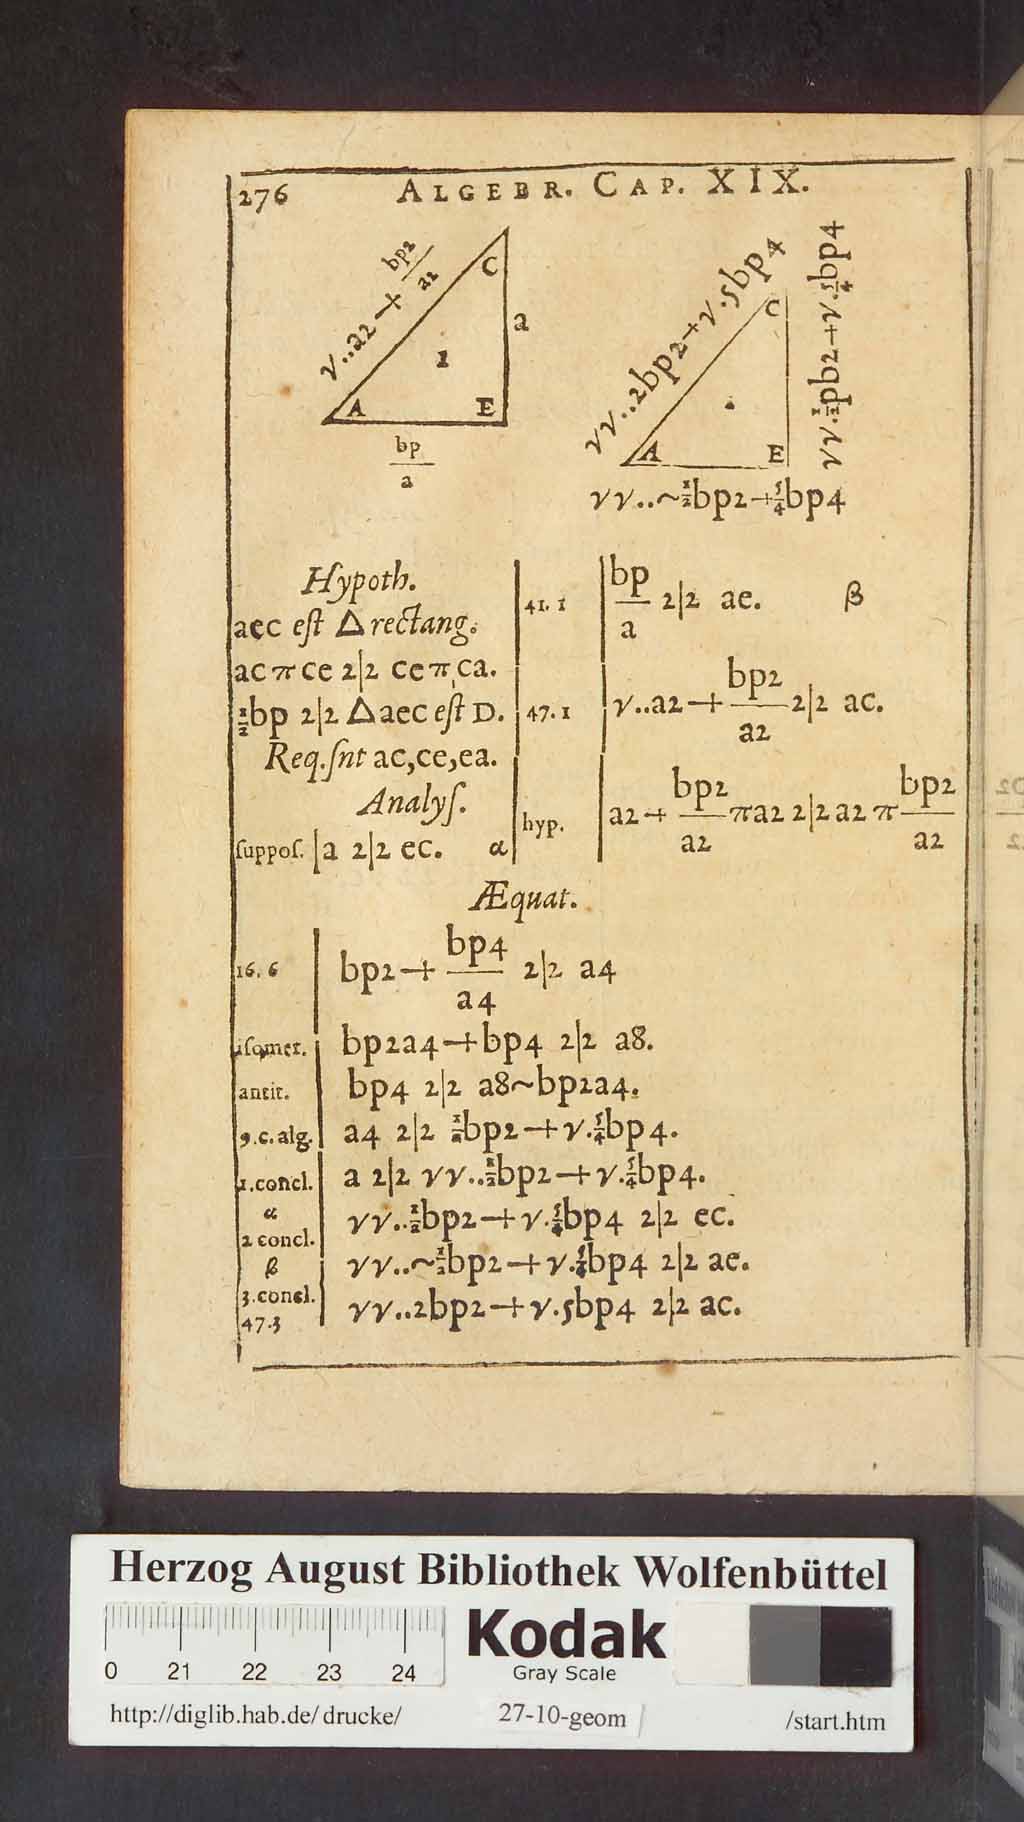 276 ALGEBR. CAP. XIX.
√..a2+bp2/a2
C
a
1
A E
bp/a
√√..2bp2+√.5bp4
C
√√.½pb2+√.5/4bp4
A E
√√..~½bp2+5/4bp4
Hypoth.
aec eſt △ rectang.
ac π ce 2|2 ce π ca.
½bp 2|2 △ aec eſt D.
Req.ſnt ac,ce,ea.
Analyſ.
ſuppoſ. | a 2|2 ec. α
41. 1 | bp/a 2|2 ae. β
47. 1 | √..a2+bp2/a2 2|2 ac.
hyp. | a2+bp2/a2 π a2 2|2 a2 π bp2/a2
Æquat.
16. 6 | bp2+bp4/a4 2|2 a4
iſomer. | bp2a4+bp4 2|2 a8.
antit. | bp4 2|2 a8~bp2a4.
9.c.alg. | a4 2|2 ½bp2+√.5/4bp4.
1.concl. | a 2|2 √√..½bp2+√.5/4bp4.
α
2 concl. | √√..½bp2+√.5/4bp4 2|2 ec.
β | √√..~½bp2+√.5/4bp4 2|2 ae.
3.concl.
47.3 | √√..2bp2+√.5bp4 2|2 ac.
Herzog August Bibliothek Wolfenbüttel
0 21 22 23 24
Kodak
Gray Scale
http://diglib.hab.de/drucke/ 27-10-geom /start.htm